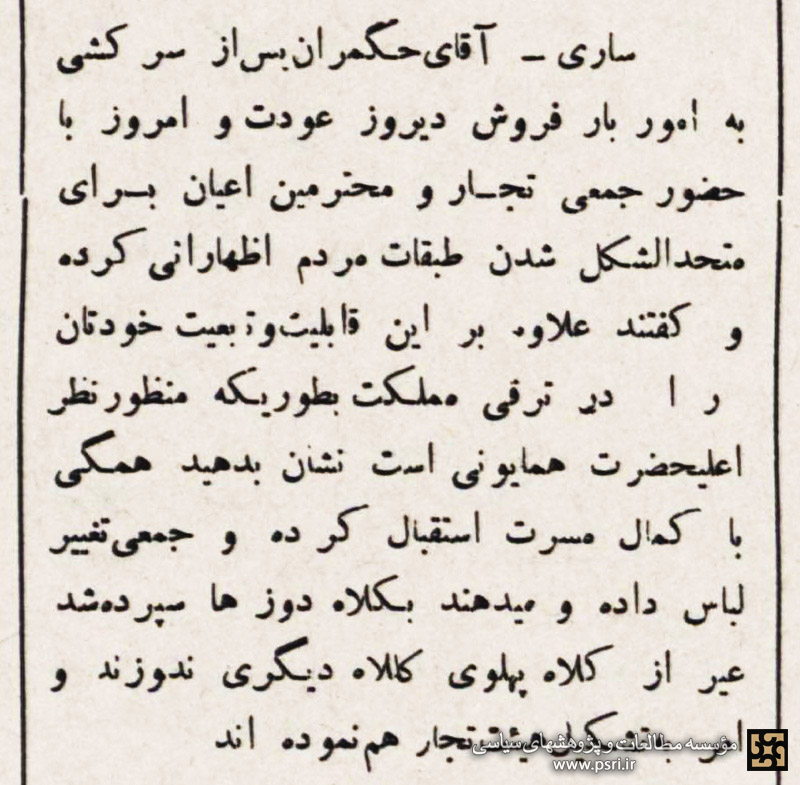 ساری ــ آقای حکمران پس از سر کشی
به امور بار فروش دیروز عودت و امروز با
حضور جمعی تجار و محترمین اعیان برای
متحدالشکل شدن طبقات مردم اظهاراتی کرده
و گفتند علاوه بر این قابلیت و تبعیت خودتان
را در ترقی مملکت بطوریکه منظور نظر
اعلیحضرت همایونی است نشان بدهید همگی
با کمال مسرت استقبال کرده و جمعی تغییر
لباس داده و میدهند بکلاه دوز ها سپرده شد
عیر از کلاه پهلوی کلاه دیگری ندوزند و
امر بتشکیل هیئت تجار هم نموده اند
مؤسسه مطالعات و پژوهشهای سیاسی
www.psri.ir